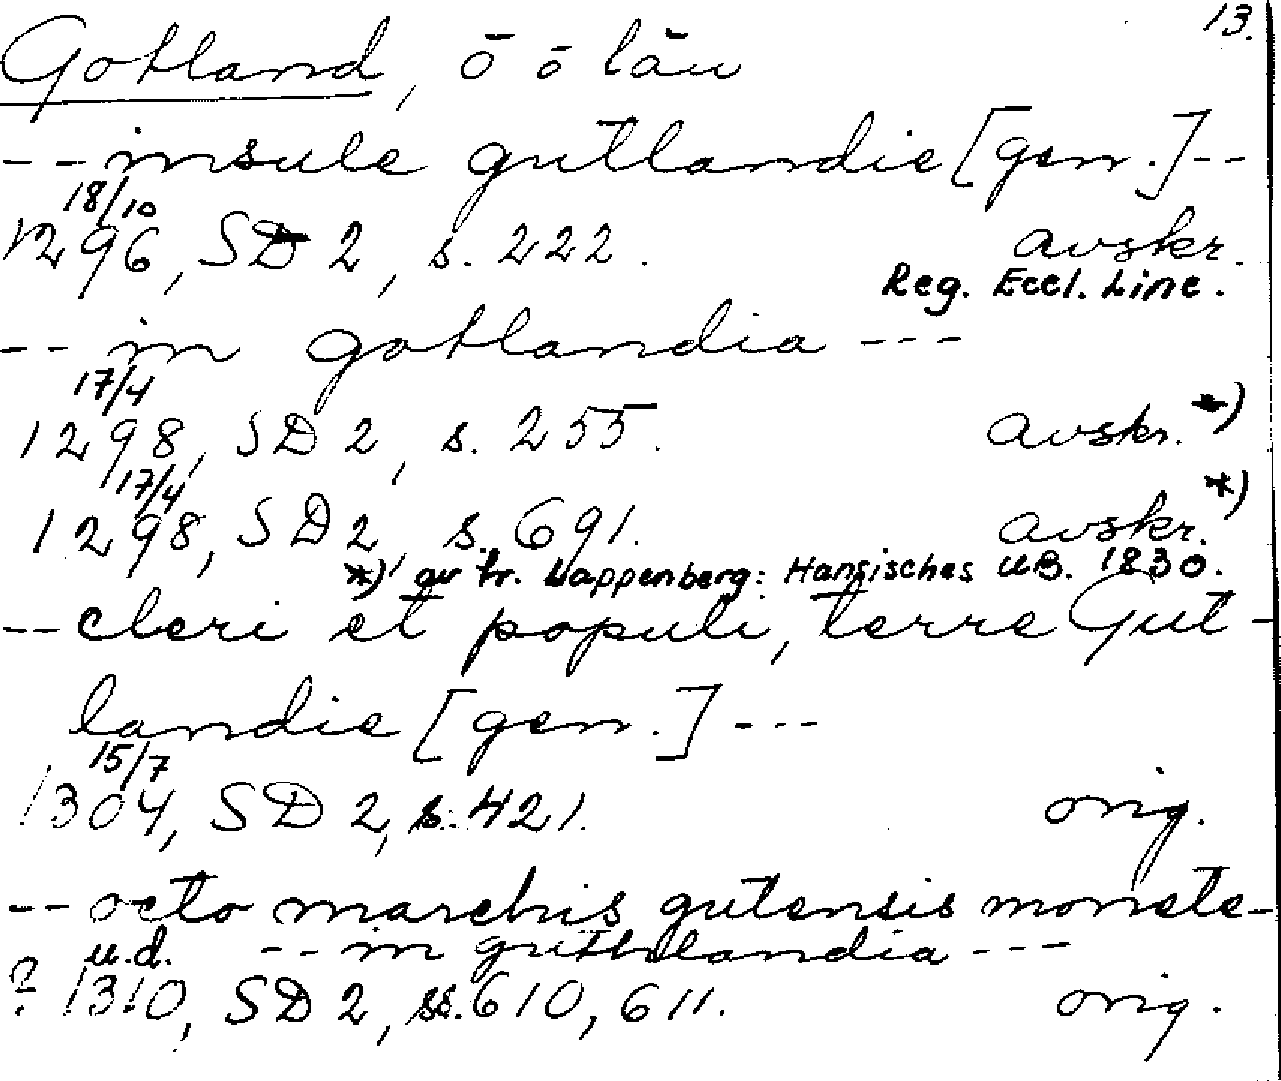 13.
Gotland, ō ō län
-- insule gutlandie [gen.] --
18/10
1296, SD 2, s. 222. avskr.
Reg. Eccl. Linc.
-- in gotlandia ---
17/4
1298, SD 2, s. 255. avskr. *)
17/4
1298, SD 2, s. 691. avskr. *)
*) av tr. Lappenberg: Hansisches UB. 1830.
-- cleri et populi, terre Gut-
landie [gen.] ---
15/7
1304, SD 2, s. 421. orig.
-- octo marchis gutensis monete-
u.d. -- in guthlandia ---
? 1310, SD 2, ss. 610, 611. orig.